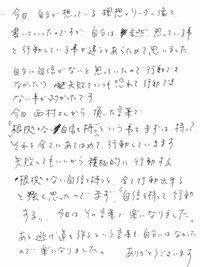 今日 自分が想っている 理想のリーダー像を
書いていったのですが 自分は 思っている事
と行動している事が違うとあらためて思いました
自分に自信がないと思っていたので行動でき
なかったり 失敗しても 恐れて行動でき
ない事が分かったです
今日 西村さんから 頂いた言葉で
根拠のない自信を持つという事を まずは 持って
それを全てにあてはめて行動していきます
失敗してもいいから 積極的に行動する
根拠のない自信を持ち 全て行動出する
と強く思ったので まず 自信を持って行動
する。 今日は、その言葉で楽になりました。
ある 逃げ道を作るという言葉も自分にはなかった
ので 楽になりました。 ありがとうございます